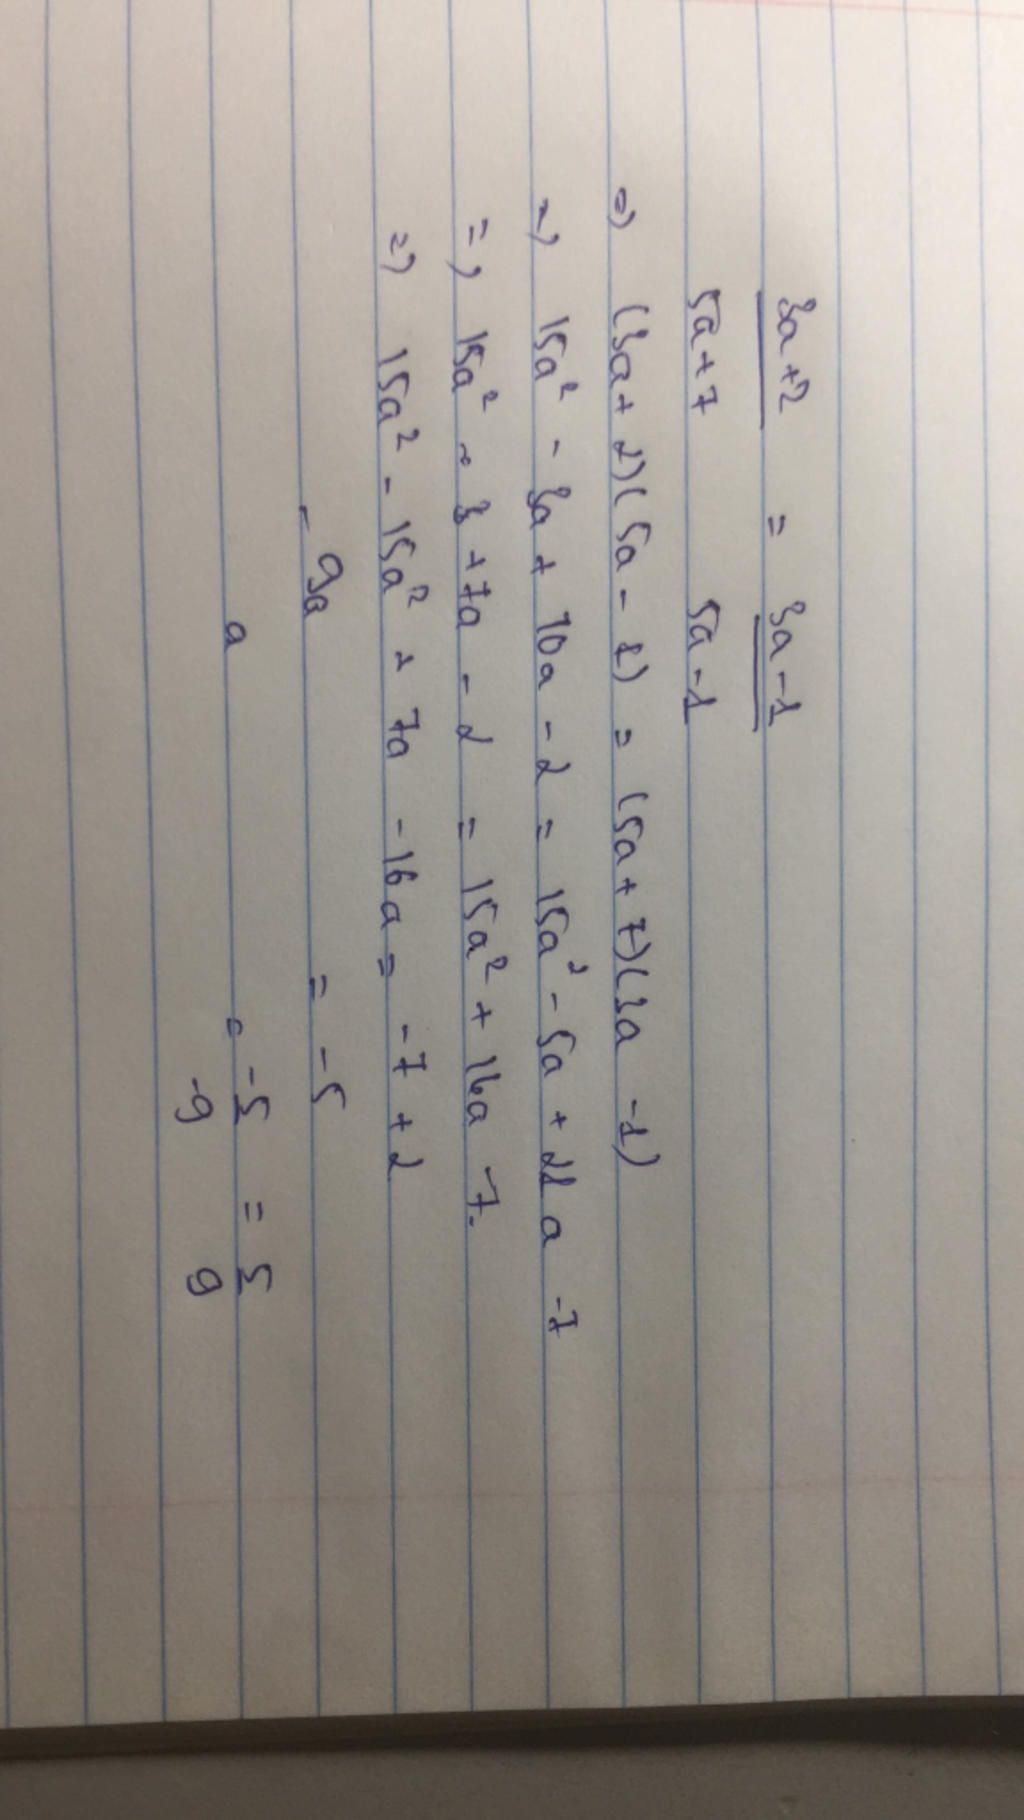 3a+2 = 3a-1
5a+7 5a-1
=) (3a+2)(5a-1) = (5a+7)(3a-1)
=) 15a² - 3a + 10a - 2 = 15a² - 5a + 21a -7
=) 15a² + 7a - 2 = 15a² + 16a -7.
=) 15a² - 15a² + 7a -16a = -7 +2
-9a = -5
a = -5 = 5
-9 9